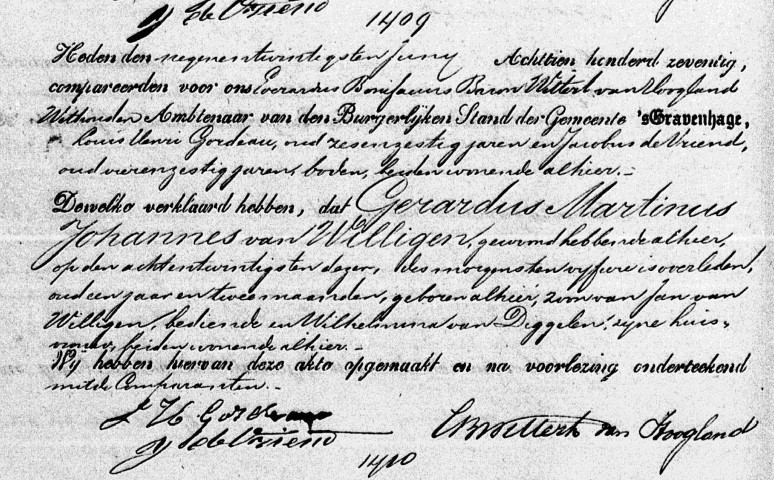 J de Vriend
1409
Heden den negenentwintigsten Juny Achttien honderd zeventig,
compareerden voor ons Everardus Bonifacius Baron Wittert van Hoogland
Wethouder Ambtenaar van den Burgerlijken Stand der Gemeente 's Gravenhage,
Louis Henri Gordeau, oud zesenzestig jaren en Jacobus de Vriend,
oud vierenzestig jaren, boden, beiden wonende alhier.-
Dewelke verklaard hebben, dat Gerardus Martinus
Johannes van Willigen, gewoond hebbende alhier,
op den achtentwintigsten dezer, des morgens ten vyf ure is overleden,
oud een jaar en twee maanden, geboren alhier, zoon van Jan van
Willigen, bediende en Wilhelmina van Diggelen, zyne huis-
vrouw, beiden wonende alhier.-
Wij hebben hiervan deze akte opgemaakt en na voorlezing onderteekend
met de Comparanten.-
L H Gordeau
J de Vriend
EBWittert van Hoogland
1410